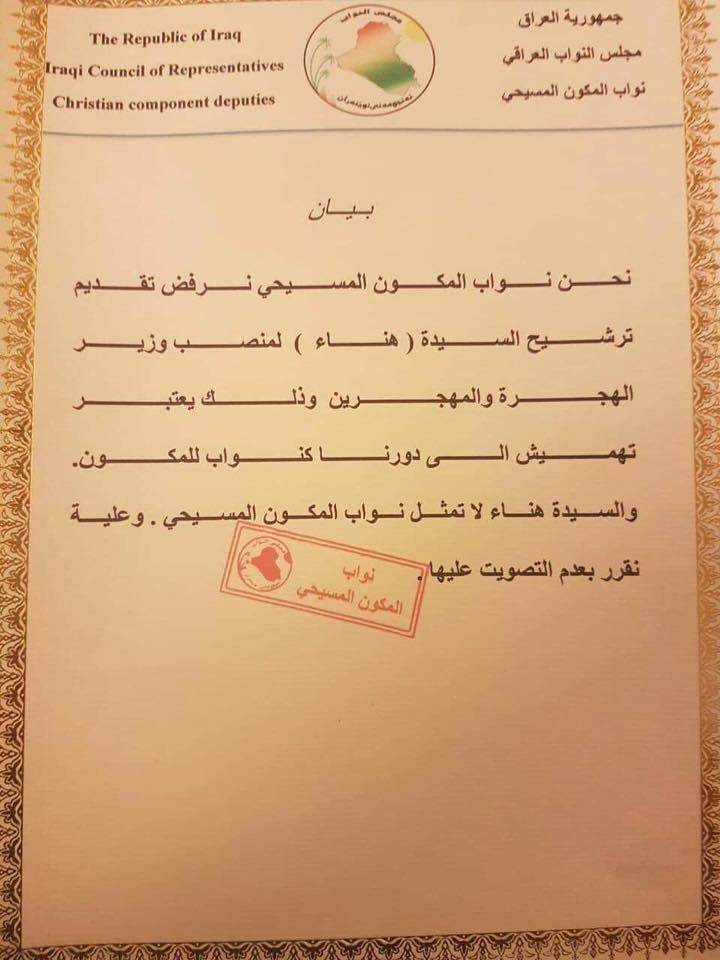 The Republic of Iraq
Iraqi Council of Representatives
Christian component deputies
مجلس النواب
جمهورية العراق
مجلس النواب العراقي
نواب المكون المسيحي
بيان
نحن نواب المكون المسيحي نرفض تقديم
ترشيح السيدة ( هناء ) لمنصب وزير
الهجرة والمهجرين وذلك يعتبر
تهميش الى دورنا كنواب للمكون.
والسيدة هناء لا تمثل نواب المكون المسيحي . وعلية
نقرر بعدم التصويت عليها .
نواب
المكون المسيحي